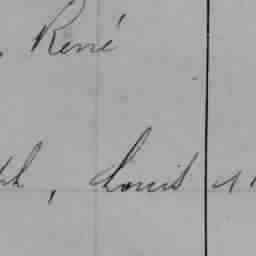 , René
th, Louis